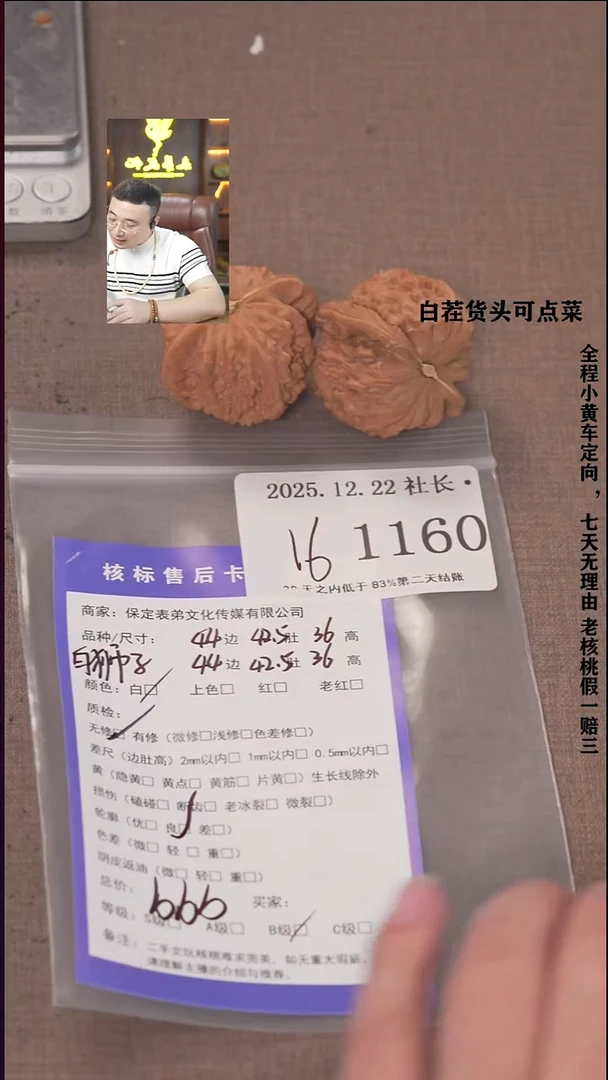 白茬货头可点菜
全程小黄车定向，七天无理由 老核桃假一赔三
2025.12.22 社长·
16 1160
天之内低于 83%第二天结账
核标售后卡
商家：保定表弟文化传媒有限公司
品种/尺寸： 44边 42.5肚 36高
白狮子 44边 42.5肚 36高
颜色：白□ 上色□ 红□ 老红□
质检：
无修□ 有修（微修□浅修□色差修□）
差尺（边肚高）2mm以内□ 1mm以内□ 0.5mm以内□
黄（隐黄□ 黄点□ 黄筋□ 片黄□）生长线除外
损伤（磕碰□ 断齿□ 老冰裂□ 微裂□）
轮廓（优□ 良□ 差□）
色差（微□ 轻□ 重□）
阴皮返油（微□ 轻□ 重□）
总价： 666 买家：
等级：S级□ A级□ B级□ C级□
备注：二手文玩核桃难求完美，如无重大瑕疵，
请理解主播的介绍与推荐。